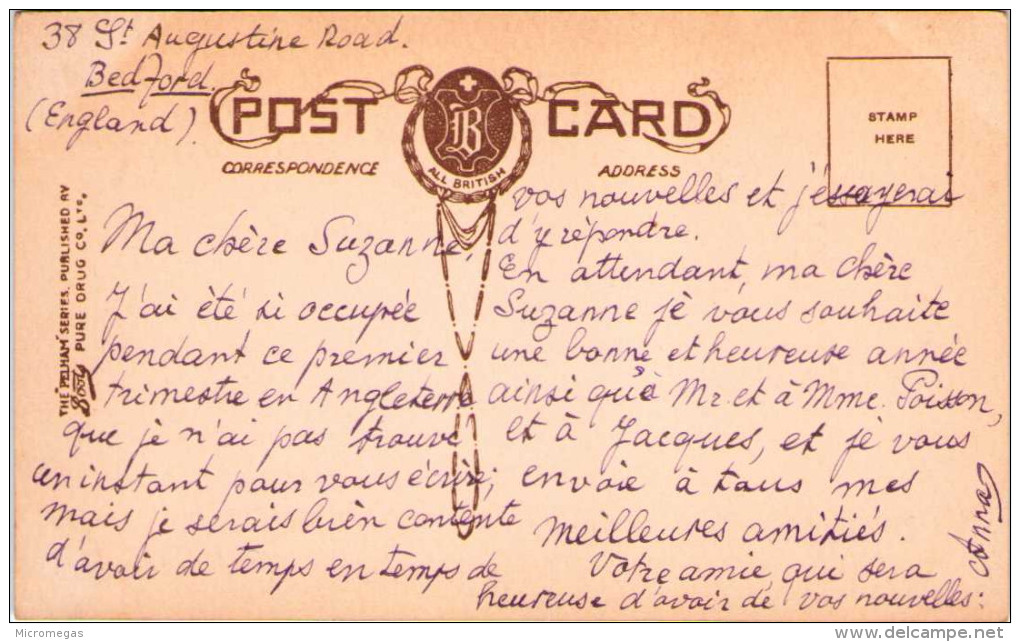 38 St Augustine Road.
Bedford.
(England).
POST CARD
B
ALL BRITISH
CORRESPONDENCE
ADDRESS
STAMP
HERE
THE "PELHAM" SERIES. PUBLISHED BY
Boots PURE DRUG CO. LTD.
Ma chère Suzanne,
J'ai été si occupée
pendant ce premier
trimestre en Angleterre
que je n'ai pas trouvé
un instant pour vous écrire;
mais je serais bien contente
d'avoir de temps en temps de
vos nouvelles et j'éssayerai
d'y répondre.
En attendant, ma chère
Suzanne je vous souhaite
une bonne et heureuse année
ainsi qu'à Mr. et à Mme. Poisson,
et à Jacques, et je vous
envoie à tous mes
meilleures amitiés.
Votre amie qui sera
heureuse d'avoir de vos nouvelles:
Anna
Micromegas
delcampe.net